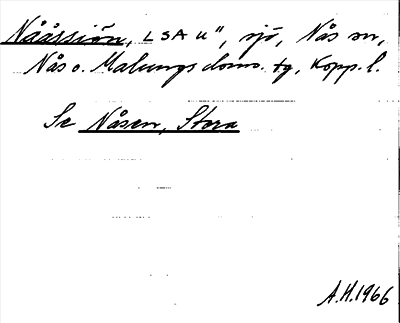 Nååssjön, LSA u", sjö, Nås sn,
Nås o. Malungs doms. tg, Kopp. l.
Se Nåsen, Stora
A.H. 1966